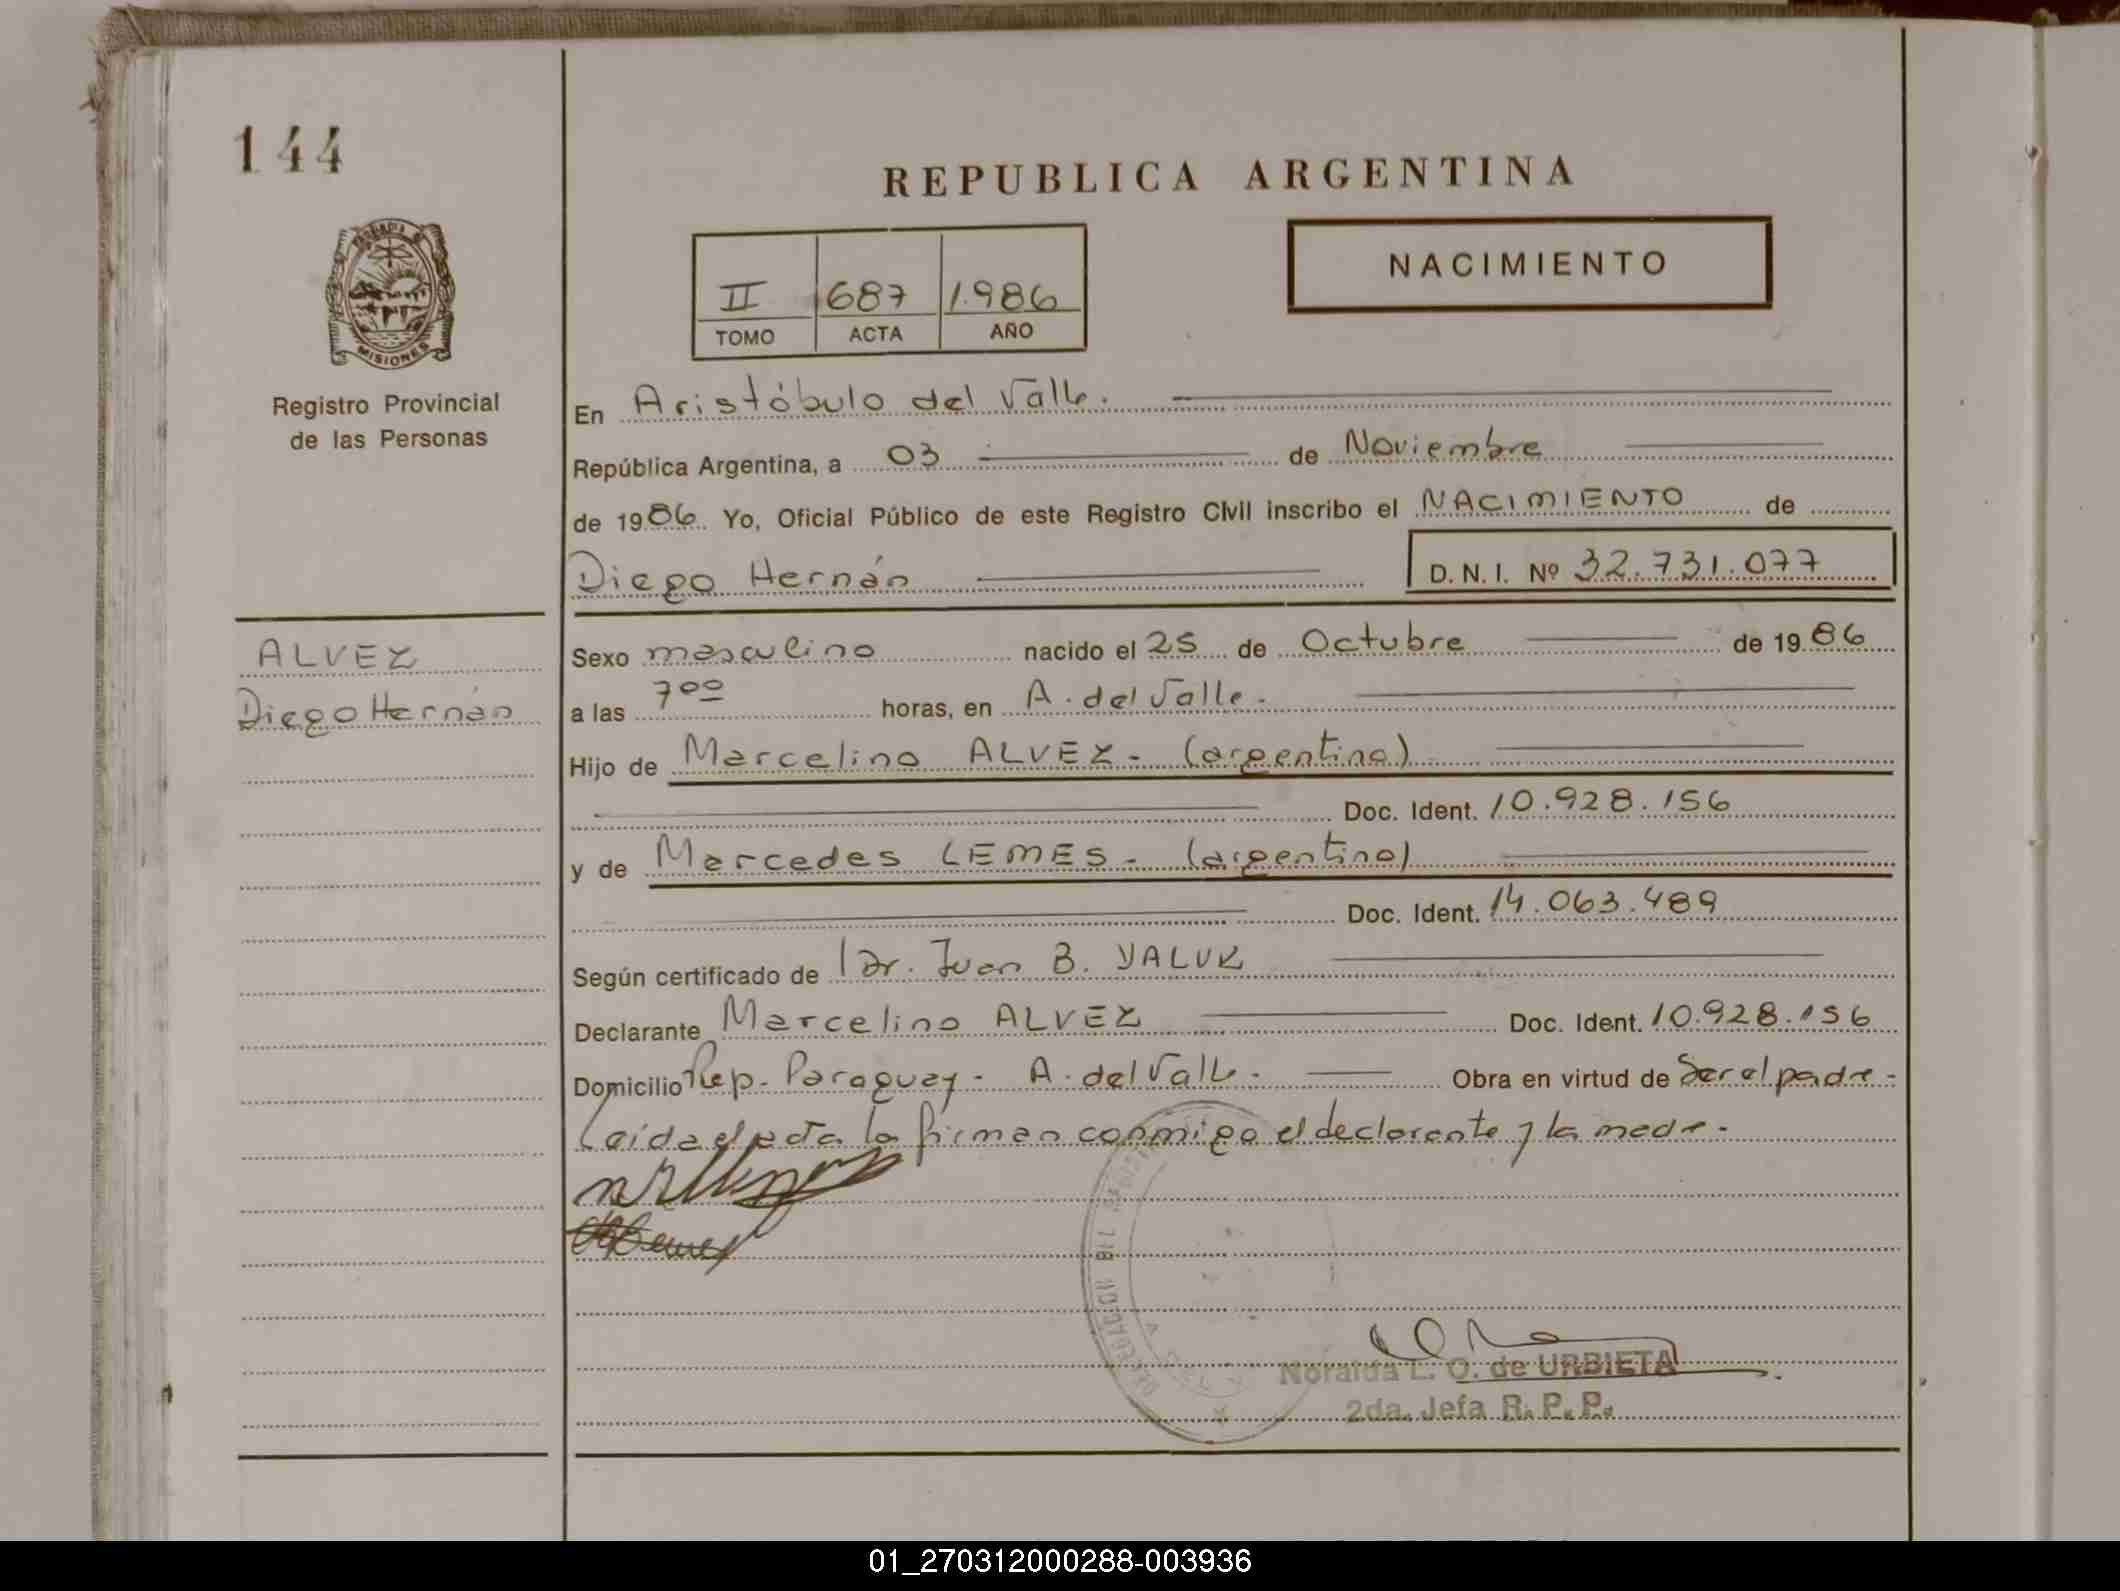 144
REPUBLICA ARGENTINA
NACIMIENTO
II 687 1.986
TOMO ACTA AÑO
MISIONES
Registro Provincial
de las Personas
En Aristóbulo del Valle.
República Argentina, a 03 de Noviembre
de 1986 Yo, Oficial Público de este Registro Civil inscribo el NACIMIENTO de
Diego Hernán D.N.I. Nº 32.731.077
ALVEZ
Diego Hernán
Sexo masculino nacido el 25 de Octubre de 1986
a las 7 00 horas, en A. del Valle.
Hijo de Marcelino ALVEZ - (argentino)
Doc. Ident. 10.928.156
y de Mercedes LEMES - (argentina)
Doc. Ident. 14.063.489
Según certificado de Dr. Juan B.
Declarante Marcelino ALVEZ Doc. Ident. 10.928.156
Domicilio Rep. Paraguay - A. del Valle. Obra en virtud de Ser el padre -
Leída el acta la firman conmigo el declarante y la madre.
Noralda L. O. de URBIETA
2da. Jefa R. P. P.
01_270312000288-003936